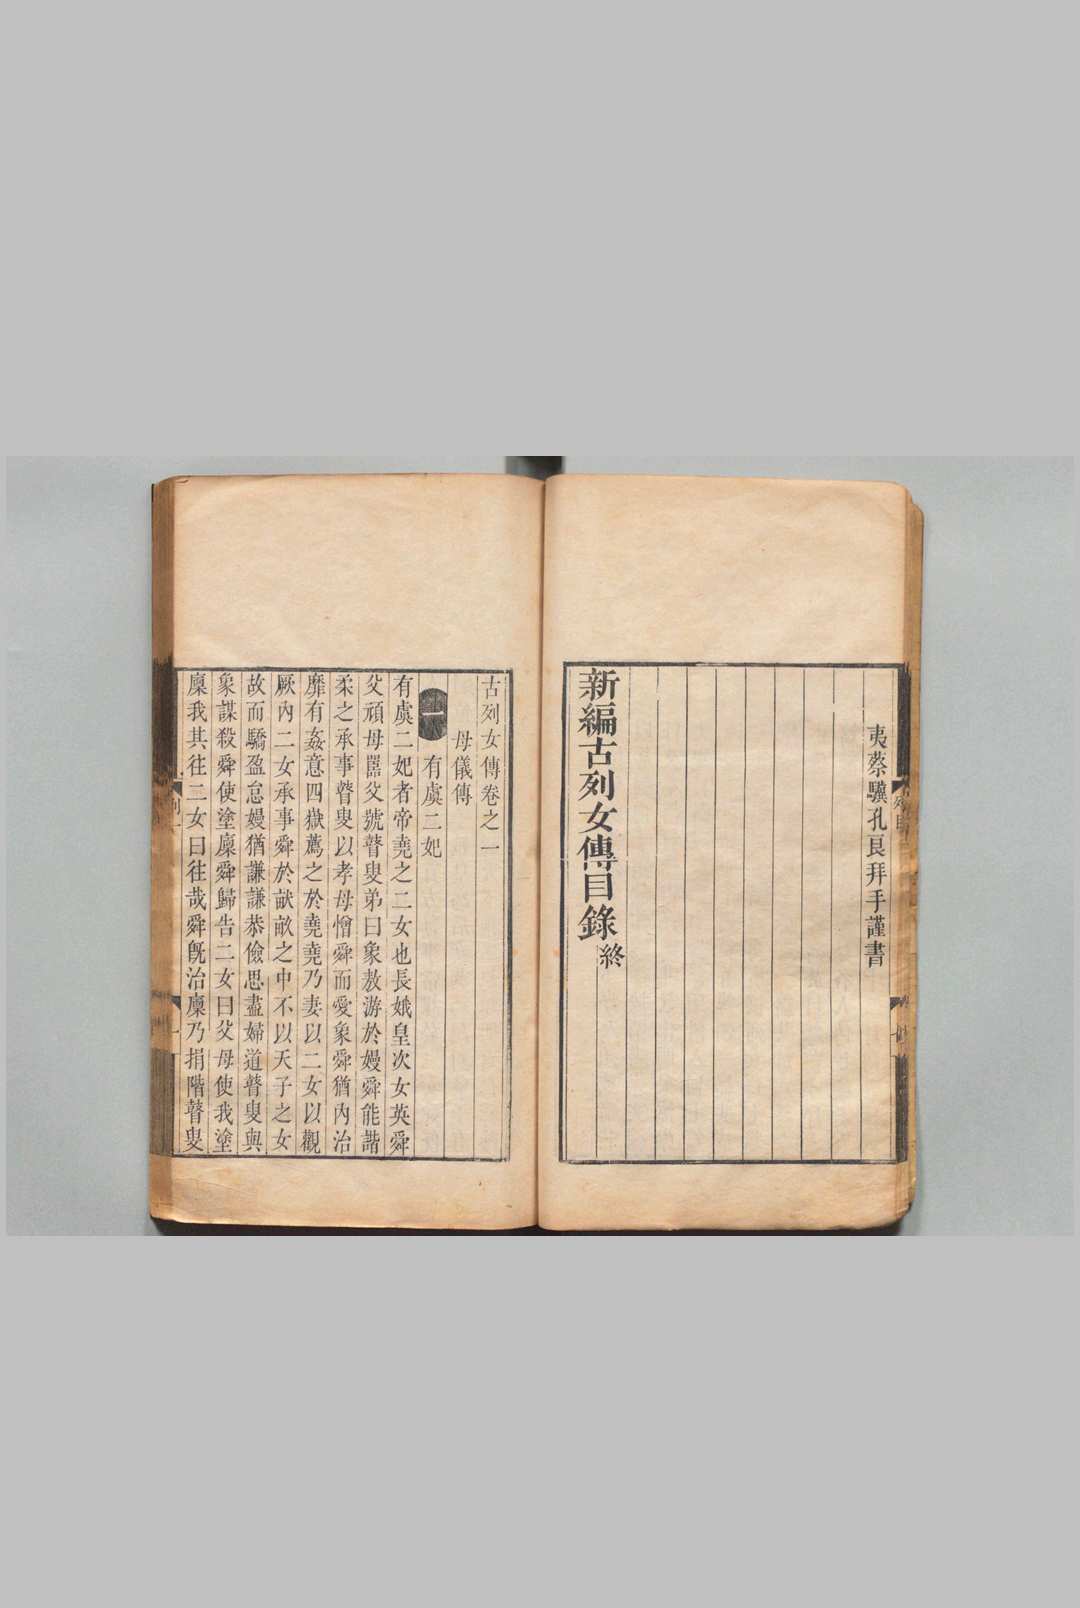 夷蔡驥孔良拜手謹書
新編古列女傳目錄終
古列女傳卷之一
母儀傳
一 有虞二妃
有虞二妃者帝堯之二女也長娥皇次女英舜
父頑母嚚父號瞽叟弟曰象敖游於嫚舜能諧
柔之承事瞽叟以孝母憎舜而愛象舜猶內治
靡有姦意四嶽薦之於堯堯乃妻以二女以觀
厥內二女承事舜於畎畝之中不以天子之女
故而驕盈怠嫚猶謙謙恭儉思盡婦道瞽叟與
象謀殺舜使塗廩舜歸告二女曰父母使我塗
廩我其往二女曰往哉舜既治廩乃捐階瞽叟